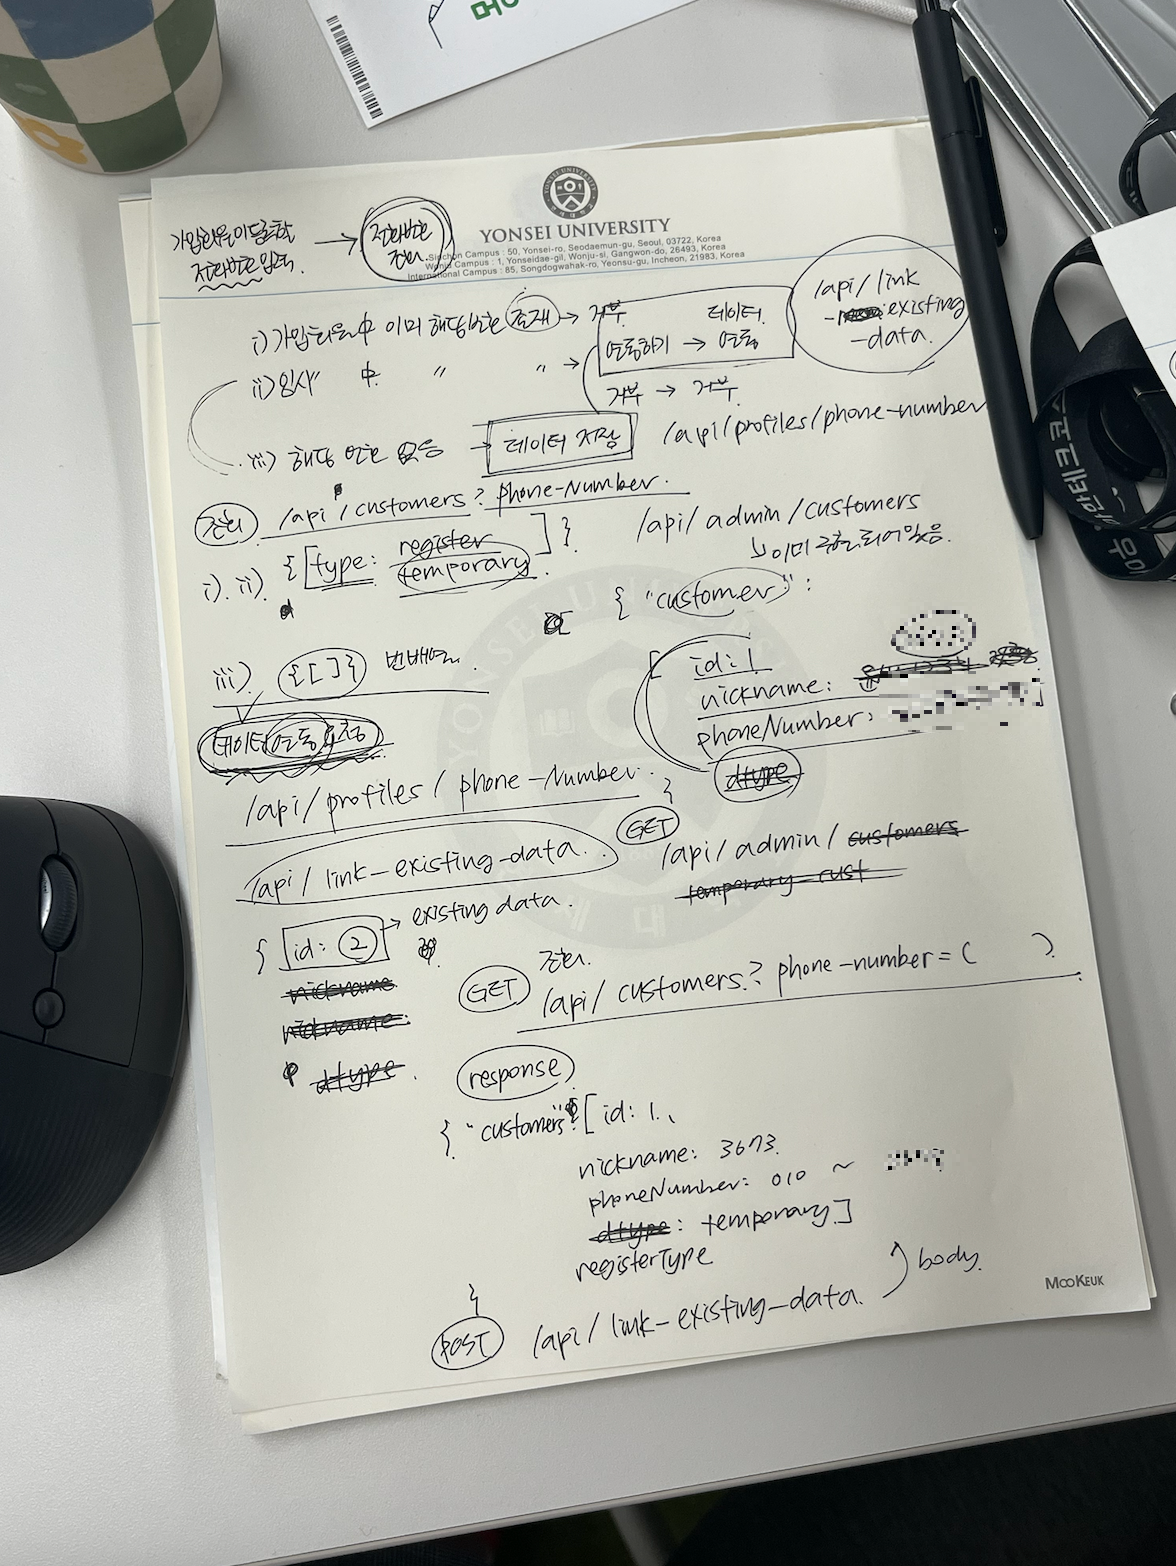 YONSEI UNIVERSITY
Sinchon Campus : 50, Yonsei-ro, Seodaemun-gu, Seoul, 03722, Korea
Wonju Campus : 1, Yonseidae-gil, Wonju-si, Gangwon-do, 26493, Korea
International Campus : 85, Songdogwahak-ro, Yeonsu-gu, Incheon, 21983, Korea
가입
전화번호 입력.
→ 전화번호
i) 가입 中 이미 해당번호 존재 → 거부
ii) 임시 中 〃 〃 →
연동하기 → 데이터 연동
거부 → 거부
/api/link
-existing
-data.
iii) 해당 번호 없음 → 데이터 저장
/api/profiles/phone-number
/api/customers? phone-Number.
i). ii). {[type: register
temporary]}.
/api/admin/customers
↳ 이미 구현되어있음.
{ "customer" :
iii). {[ ]} 빈배열.
[ id: 1
nickname:
phoneNumber:
]
dtype
}
데이터 연동 요청
/api/profiles / phone-Number.
/api/ link-existing-data.
GET
/api/admin/ customers
temporary-cust
{ id: 2 → existing data.
nickname
nickname
dtype
GET
조회.
/api/ customers? phone-number = ( )
response
{ "customers" [ id: 1.,
nickname: 3673.
phoneNumber: 010 ~
dtype : temporary]
registerType
}
POST
/api/ link-existing-data.
) body.
MOOKEUK